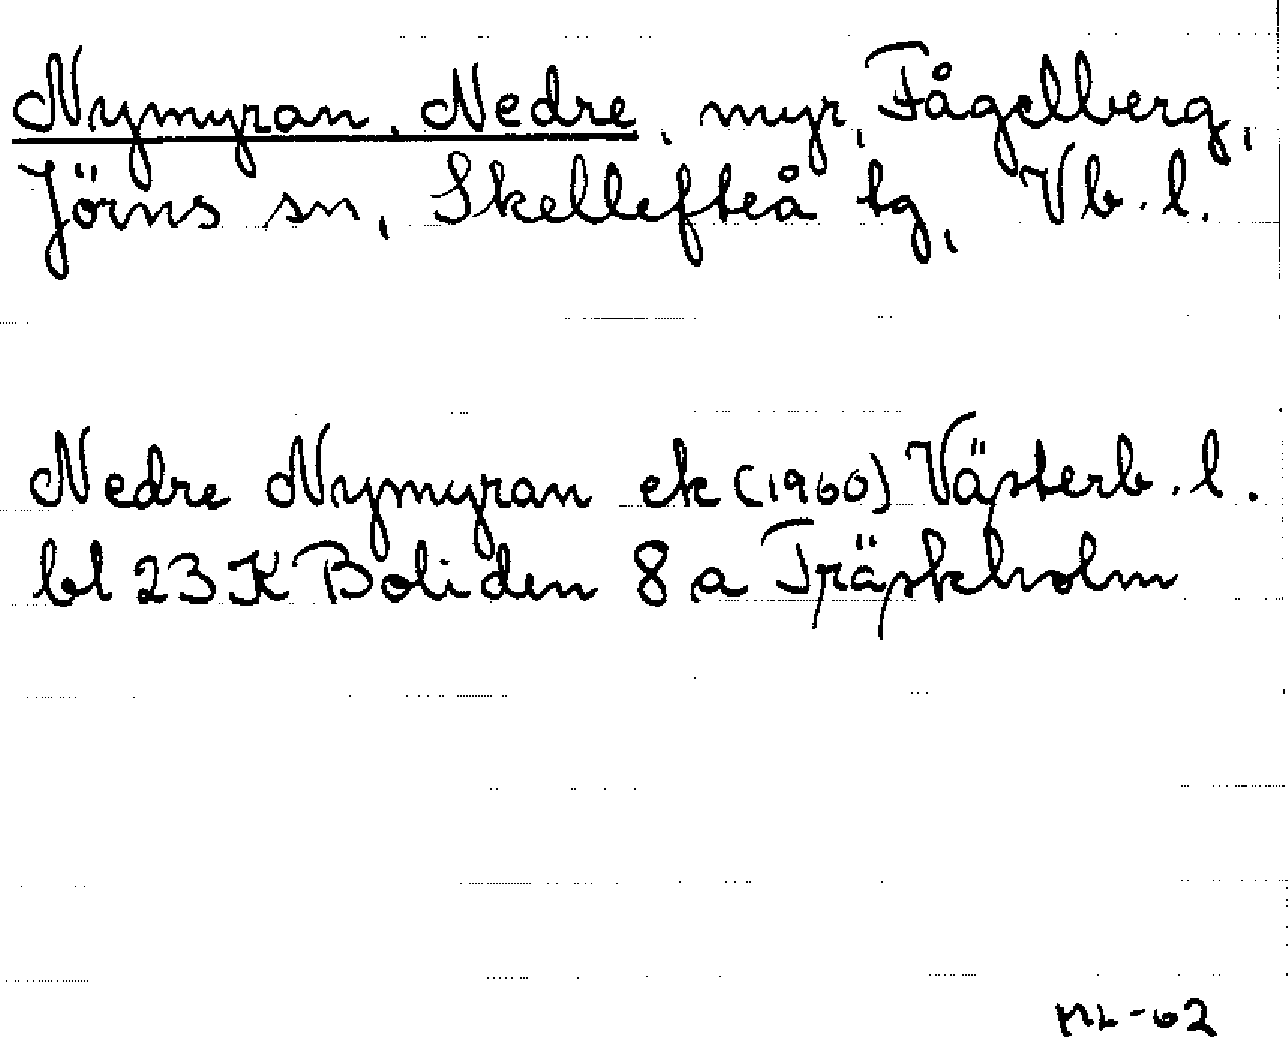 Nymyran, Nedre, myr, Fågelberg,
Jörns sn, Skellefteå tg, Vb.l.
Nedre Nymyran ek (1960) Västerb.l.
bl 23 K Boliden 8 a Träskholm
ML-62